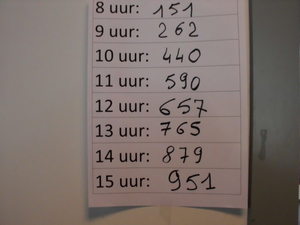 8 uur: 151
9 uur: 262
10 uur: 440
11 uur: 590
12 uur: 657
13 uur: 765
14 uur: 879
15 uur: 951